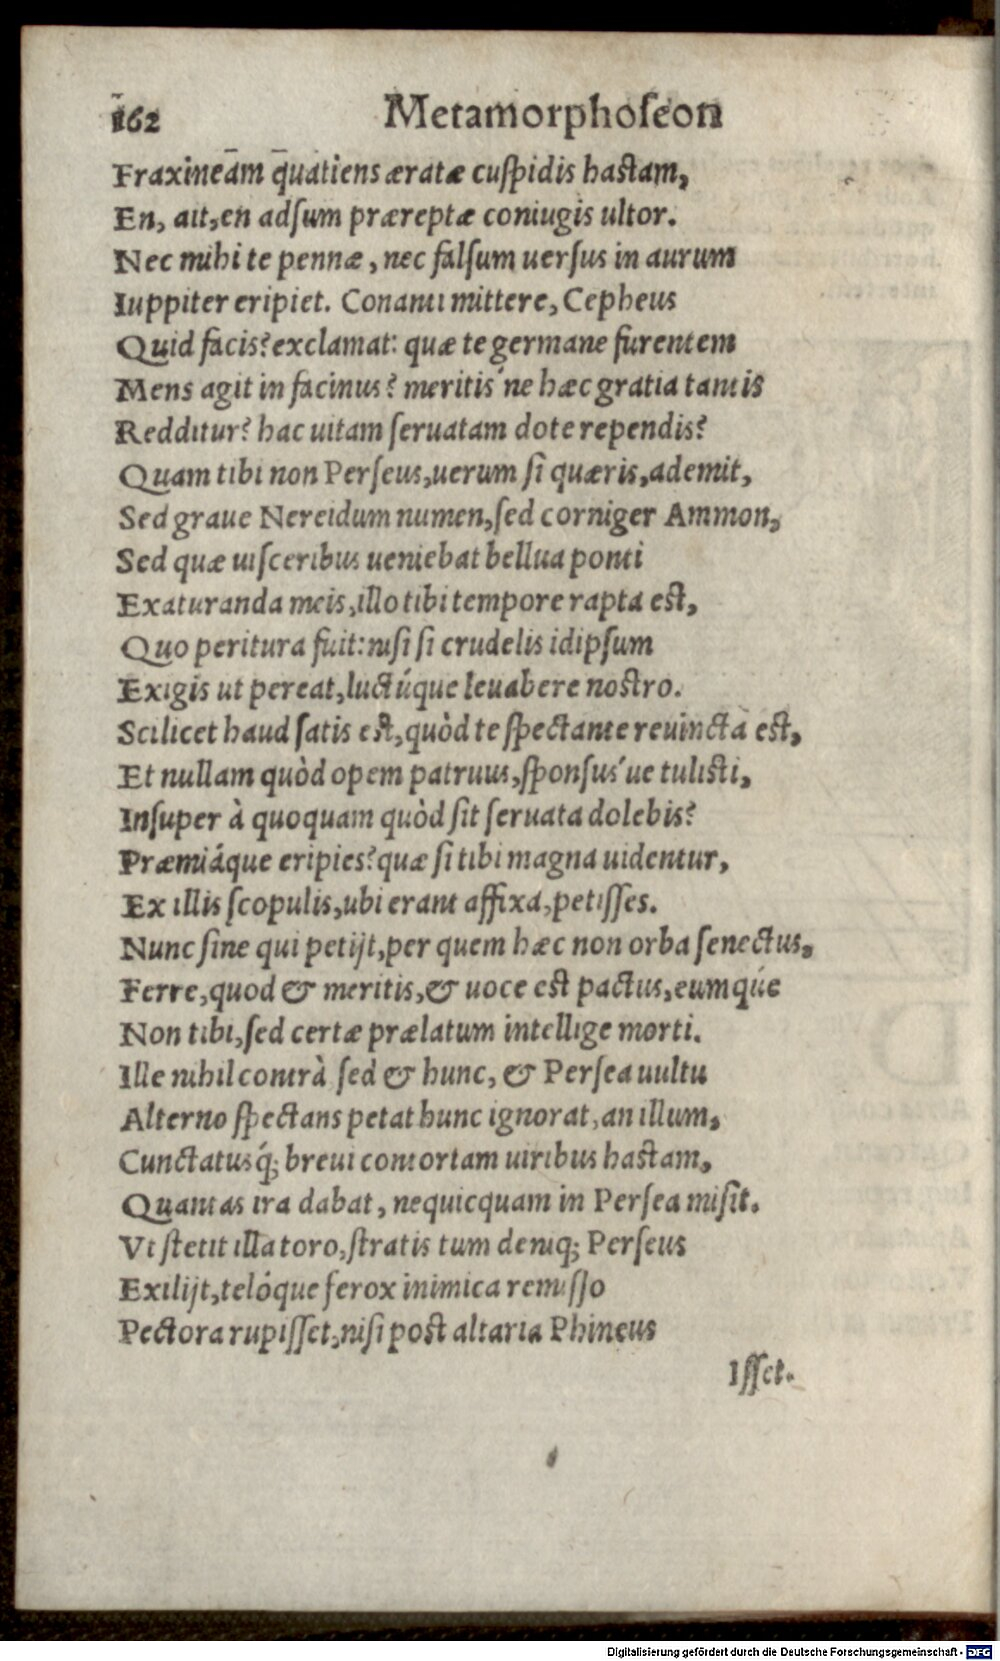 162 Metamorphoſeon
Fraxineām q̄uatiens æratæ cuſpidis hastam,
En, ait, en adſum præreptæ coniugis ultor.
Nec mihi te pennæ, nec falſum uerſus in aurum
Iuppiter eripiet. Conanti mittere, Cepheus
Quid facis? exclamat: quæ te germane furentem
Mens agit in facinus? meritis ́ne hæc gratia tantis
Redditur? hac uitam ſeruatam dote rependis?
Quam tibi non Perſeus, uerum ſi quæris, ademit,
Sed graue Nereidum numen, ſed corniger Ammon,
Sed quæ uiſceribus ueniebat bellua ponti
Exaturanda meis, illo tibi tempore rapta est,
Quo peritura fuit: niſi ſi crudelis idipſum
Exigis ut pereat, luctúque leuabere nostro.
Scilicet haud ſatis est, quòd te ſpectante reuincta est,
Et nullam quòd opem patruus, ſponſus ́ue tulisti,
Inſuper à quoquam quòd ſit ſeruata dolebis?
Præmiáque eripies? quæ ſi tibi magna uidentur,
Ex illis ſcopulis, ubi erant affixa, petiſſes.
Nunc ſine qui petijt, per quem hæc non orba ſenectus,
Ferre, quod & meritis, & uoce est pactus, eumqúe
Non tibi, ſed certæ prælatum intellige morti.
Ille nihil contrà ſed & hunc, & Perſea uultu
Alterno ſpectans petat hunc ignorat, an illum,
Cunctatusq́; breui contortam uiribus hastam,
Quantas ira dabat, nequicquam in Perſea miſit.
Vt ſtetit illa toro, ſtratis tum deniq; Perſeus
Exilijt, telóque ferox inimica remiſſo
Pectora rupiſſet, niſi post altaria Phineus
Iſſet.
Digitalisierung gefördert durch die Deutsche Forschungsgemeinschaft - DFG